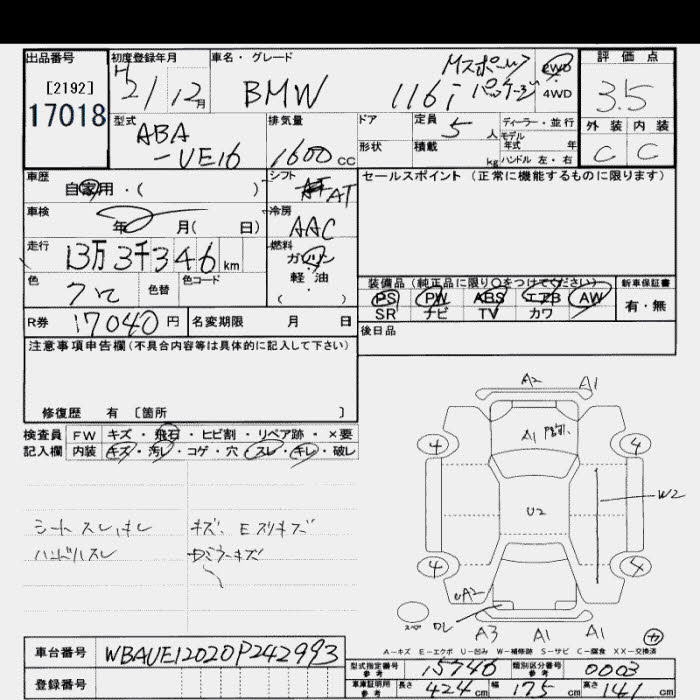 出品番号 初度登録年月 車名・グレード 評価点
[2192] H 21/12月 BMW 116i Mスポーツ パッケージ 2WD・4WD 3.5
17018
型式 排気量 ドア 定員 5人 ディーラー・並行 外装 内装
ABA モデル年式 年
-UE16 1600cc 形状 積載 kg ハンドル 左・右 C C
車歴 シフト セールスポイント (正常に機能するものに限ります)
自家用・( ) AT
車検 年 月( 日) 冷房 AAC
走行 13万3千346km 燃料 ガソリン
軽・油
( )
色 色替 色コード 装備品(純正品に限り○をつけてください) 新車保証書
クロ PS PW ABS エアB AW 有・無
SR ナビ TV カワ
R券 17040円 名変期限 月 日 後日品
注意事項申告欄(不具合内容等は具体的に記入して下さい)
修復歴 有 〔箇所 〕
検査員 FW キズ・飛石・ヒビ割・リペア跡・×要
記入欄 内装 キズ・汚レ・コゲ・穴・スレ・キレ・破レ
シートスレ、キレ
ハンドルスレ
A2 A1
A1
4 4
W2
U2
4 4
A2
スペア
A3 A1 A1
A-キズ E-エクボ U-凹み W-補修跡 S-サビ C-腐食 XX-交換済
車台番号 WBAUE12020P242993
型式指定番号 参考 15746 類別区分番号 参考 0003
登録番号
車庫証明用 参考 長さ 424cm 幅 175cm 高さ 141cm